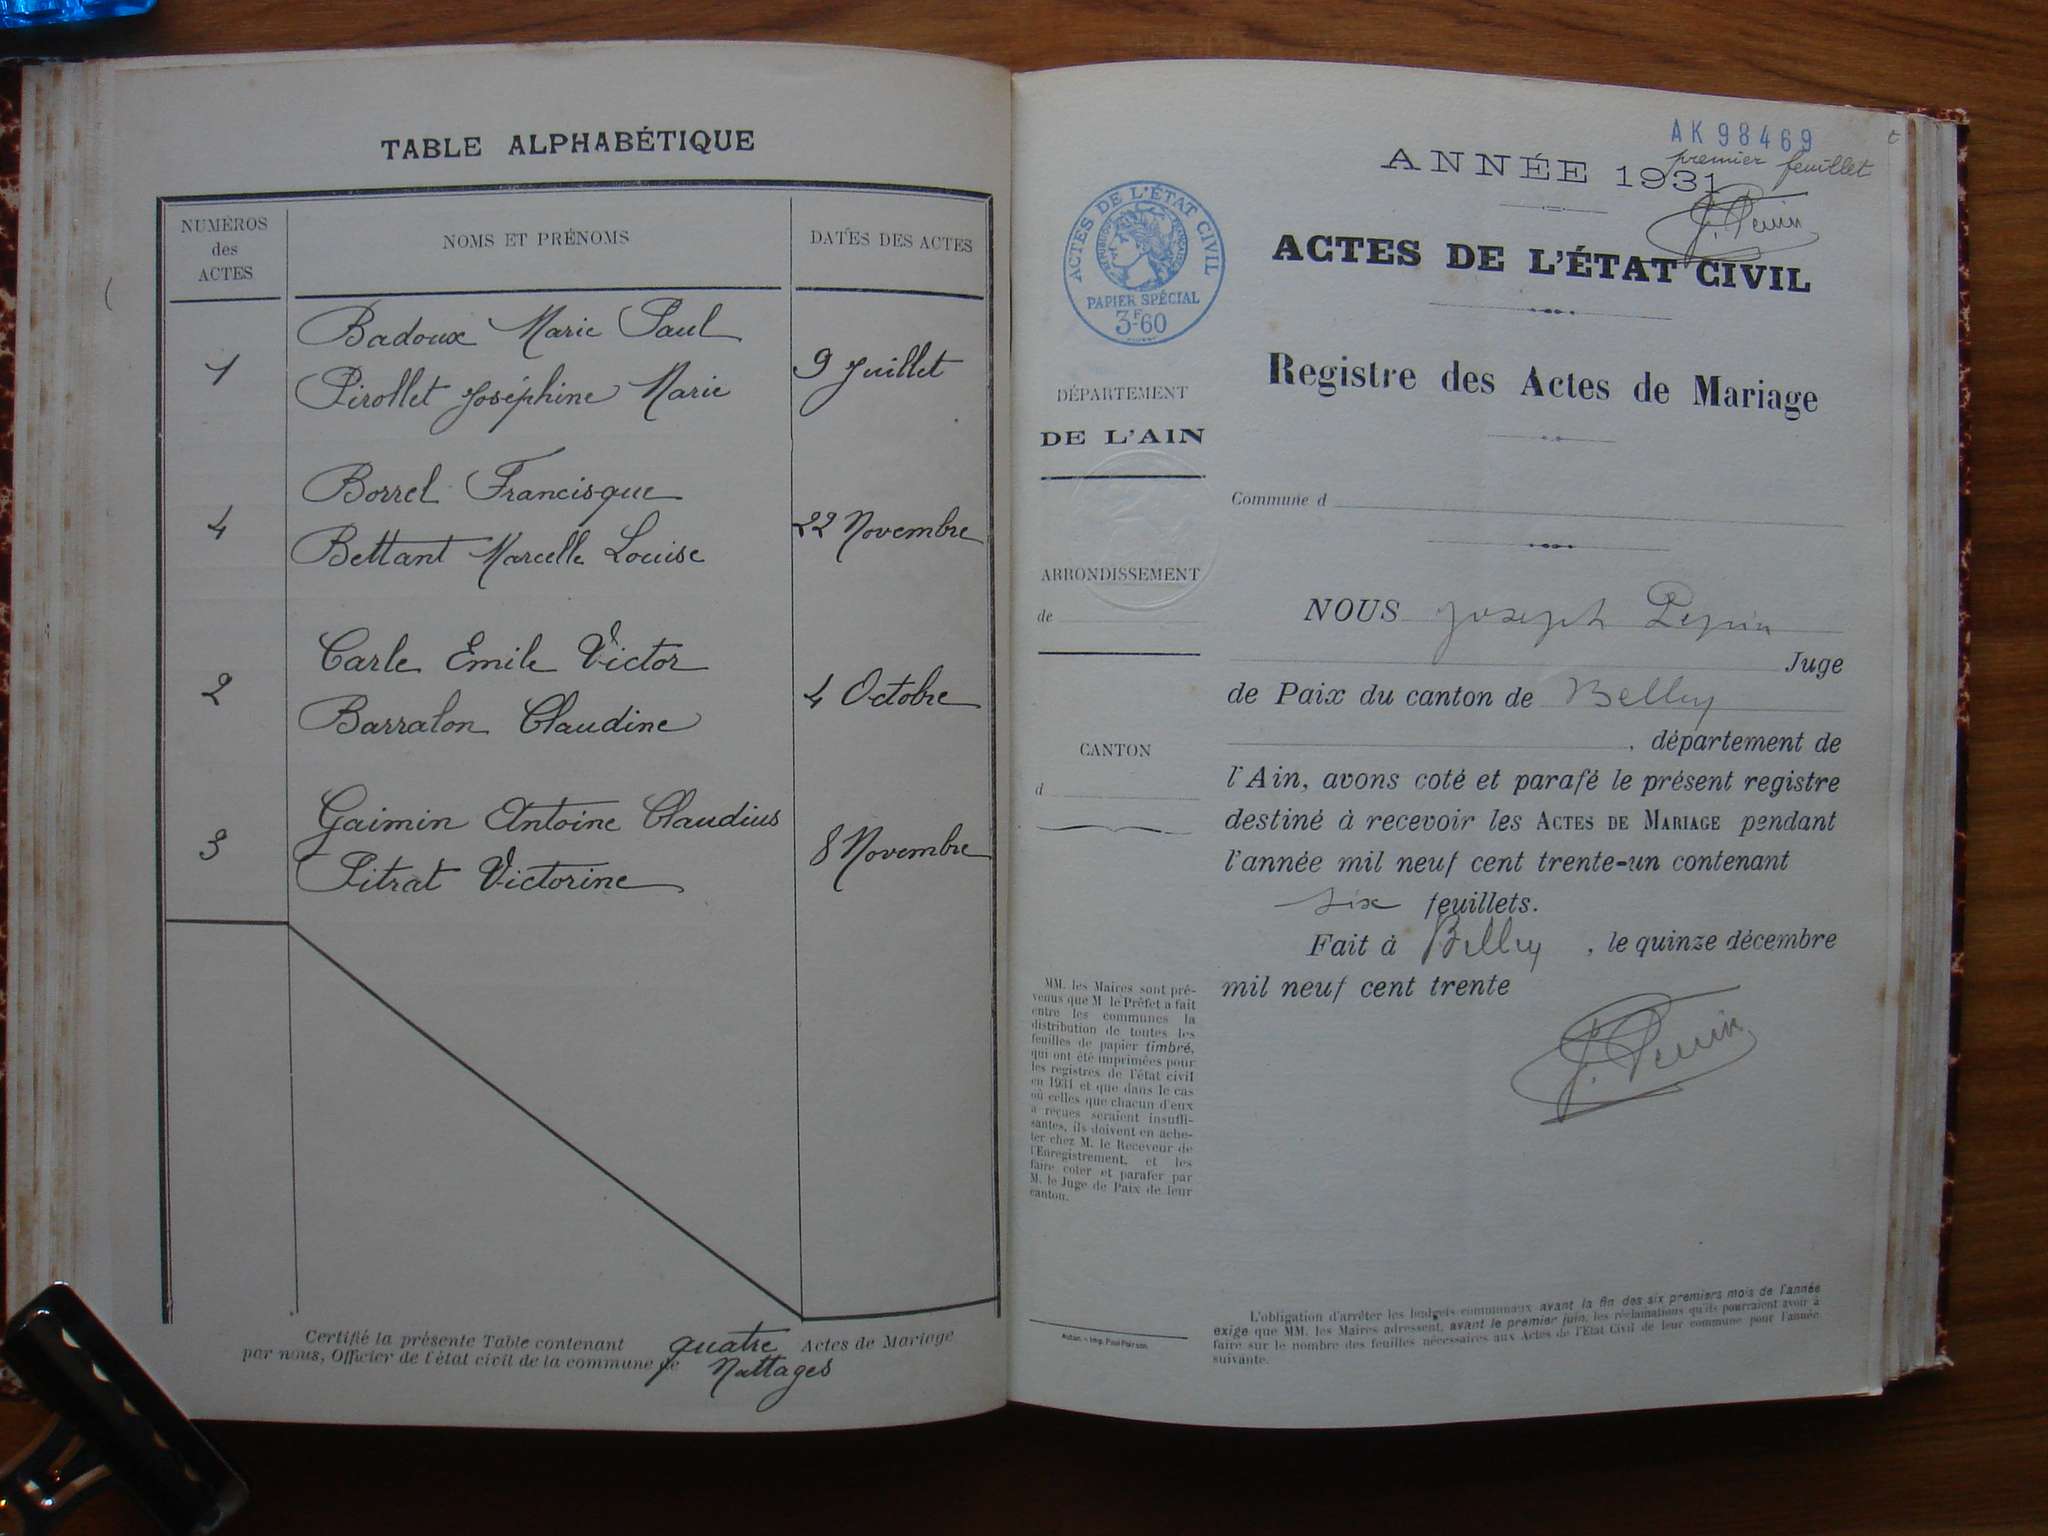 TABLE ALPHABÉTIQUE
NUMÉROS des ACTES
NOMS ET PRÉNOMS
DATES DES ACTES
1
Badoux Marie Paul
Pirollet Joséphine Marie
9 Juillet
4
Borrel Francisque
Bettant Marcelle Louise
22 Novembre
2
Carle Emile Victor
Barralon Claudine
4 Octobre
3
Gaimin Antoine Claudius
Pitrat Victorine
8 Novembre
Certifié la présente Table contenant quatre Actes de Mariage
par nous, Officier de l'état civil de la commune de Nattages
AK 98469
premier feuillet
ANNÉE 1931
ACTES DE L'ÉTAT CIVIL
RÉPUBLIQUE FRANÇAISE
PAPIER SPÉCIAL
3F60
ACTES DE L'ÉTAT CIVIL
Registre des Actes de Mariage
DÉPARTEMENT
DE L'AIN
ARRONDISSEMENT
de
CANTON
d
Commune d
NOUS Joseph
Juge
de Paix du canton de Belley
, département de
l'Ain, avons coté et parafé le présent registre
destiné à recevoir les ACTES DE MARIAGE pendant
l'année mil neuf cent trente-un contenant
six feuillets.
Fait à Belley , le quinze décembre
mil neuf cent trente
MM. les Maires sont pré-
venus que M. le Préfet a fait
entre les communes la
distribution de toutes les
feuilles de papier timbré,
qui ont été imprimées pour
les registres de l'état civil
en 1931 et que dans le cas
où celles que chacun d'eux
a reçues seraient insuffi-
santes, ils doivent en ache-
ter chez M. le Receveur de
l'Enregistrement, et les
faire coter et parafer par
M. le Juge de Paix de leur
canton.
L'obligation d'arrêter les budgets communaux avant la fin des six premiers mois de l'année
exige que MM. les Maires adressent, avant le premier juin, les réclamations qu'ils pourraient avoir à
faire sur le nombre des feuilles nécessaires aux Actes de l'Etat Civil de leur commune pour l'année
suivante.